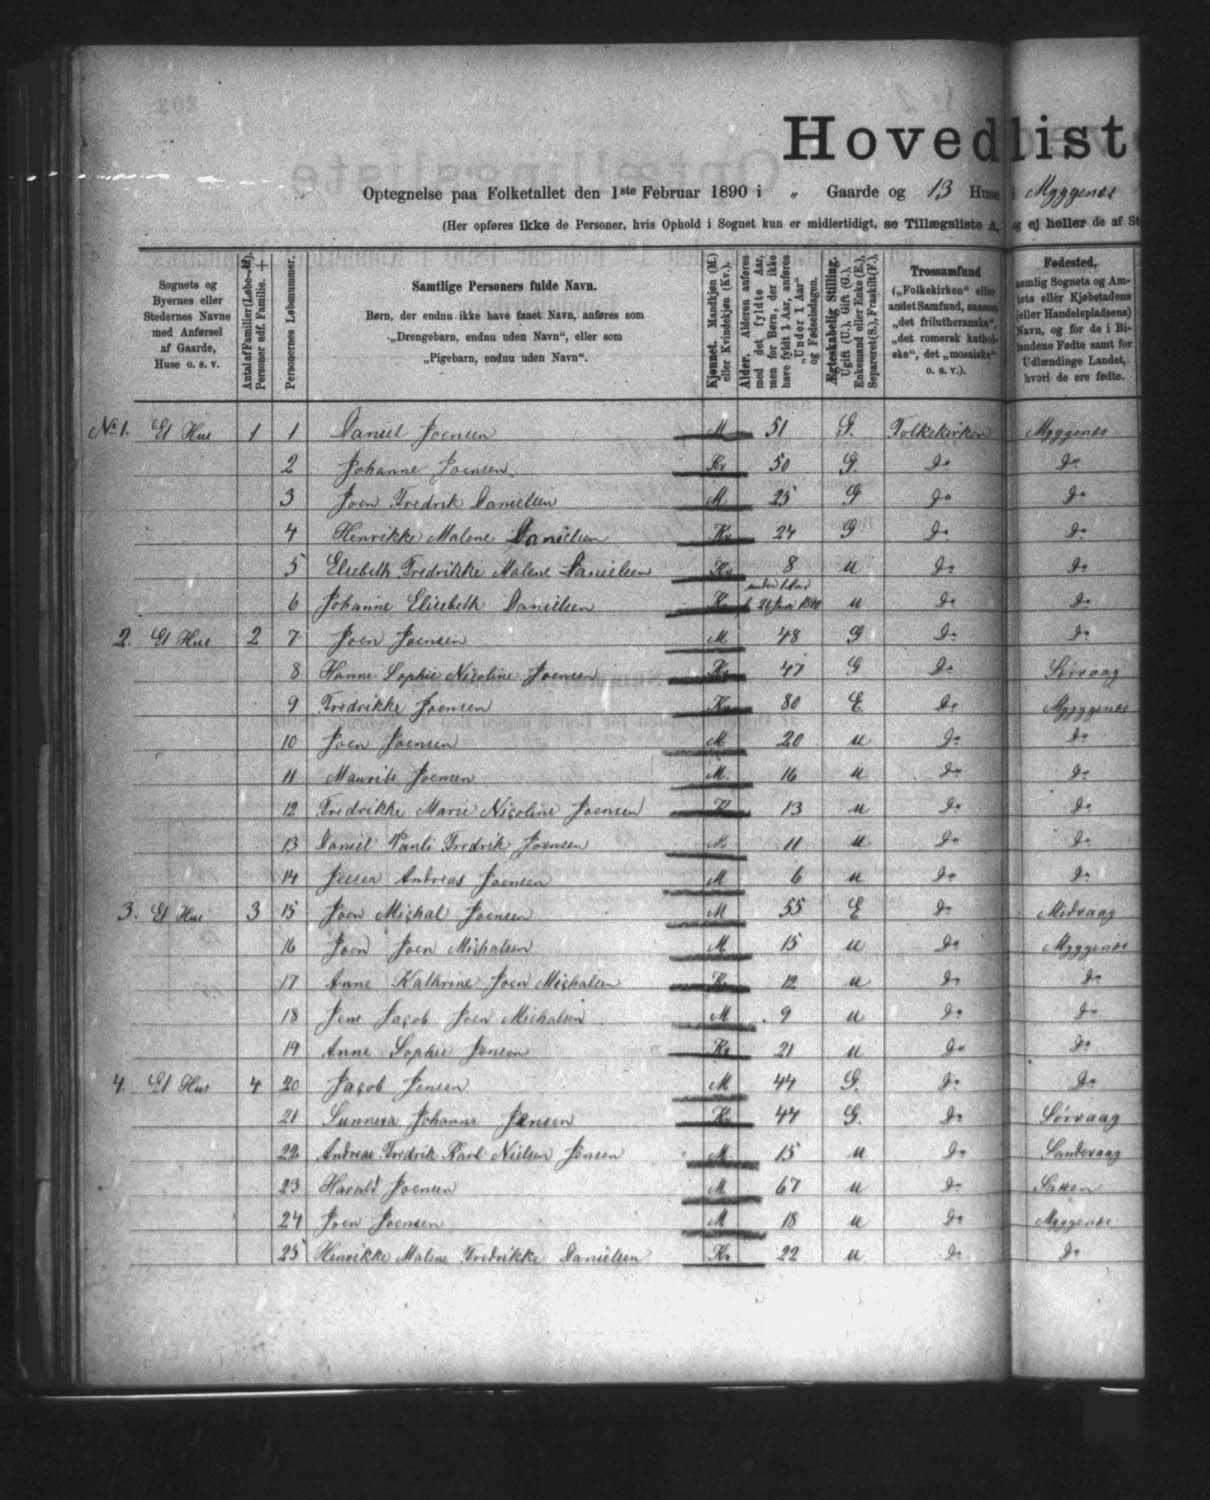 Hovedliste
Optegnelse paa Folketallet den 1ste Februar 1890 i „ Gaarde og 13 Huse i Myggenæs
(Her opføres ikke de Personer, hvis Ophold i Sognet kun er midlertidigt, se Tillægsliste A, og ej heller de af St
Sognets og Byernes eller Stedernes Navne med Anførsel af Gaarde, Huse o. s. v.
Antal af Familier (Løbe-№). Personer udf. Familie. +
Personernes Løbenummer.
Samtlige Personers fulde Navn.
Børn, der endnu ikke have faaet Navn, anføres som
„Drengebarn, endnu uden Navn“, eller som
„Pigebarn, endnu uden Navn“.
Kjønnet. Mandkjøn (M.) eller Kvindekjøn (Kv.).
Alder. Alderen anføres med det fyldte Aar, men for Børn, der ikke have fyldt 1 Aar, anføres „Under 1 Aar“ og Fødselsdagen.
Ægteskabelig Stilling. Ugift (U.), Gift (G.), Enkemand eller Enke (E.), Separeret (S.), Fraskilt (F.).
Trossamfund („Folkekirken“ eller andet Samfund, saasom „det frilutheranske“, „det romersk kathol-ske“, det „mosaiske“ o. s. v.).
Fødested, nemlig Sognets og Am-tets eller Kjøbstadens (eller Handelspladsens) Navn, og for de i Bi-landene Fødte samt for Udlændinge Landet, hvori de ere fødte.
No 1. Et Hus 1 1 Daniel Joensen M 51 G. Folkekirken Myggenæs
2 Johanne Joensen Kv 50 G. do do
3 Joen Fredrik Danielsen M 25 G do do
4 Henrikke Malene Danielsen Kv 24 G do do
5 Elsebeth Fredrikke Malene Danielsen Kv 8 u do do
6 Johanne Elisebeth Danielsen Kv under 1 Aar u do do
2. Et Hus 2 7 Joen Joensen M 48 G do do
8 Hanne Sophie Nicoline Joensen Kv 47 G do Sørvaag
9 Fredrikke Joensen Kv 80 E do Myggenæs
10 Joen Joensen M 20 u do do
11 Maurits Joensen M. 16 u do do
12 Fredrikke Marie Nicoline Joensen K 13 u do do
13 Daniel Pauli Fredrik Joensen M 11 u do do
14 Andreas Joensen M 6 u do do
3. Et Hus 3 15 Joen Michal Joensen M 55 E do Midvaag
16 Joen Joen Michalsen M 15 u do Myggenæs
17 Anne Kathrine Joen Michalsen Kv 12 u do do
18 Jens Jacob Joen Michalsen M 9 u do do
19 Anne Sophie Jensen Kv 21 u do do
4. Et Hus 4 20 Jacob Jensen M 44 G. do do
21 Sunneva Johanne Jensen Kv 44 G. do Sørvaag
22 Andreas Fredrik Karl Nielsen Jensen M 15 u do Sandevaag
23 Harald Joensen M 67 u do
24 Joen Joensen M 18 u do Myggenæs
25 Henrikke Malene Fredrikke Danielsen Kv 22 u do do